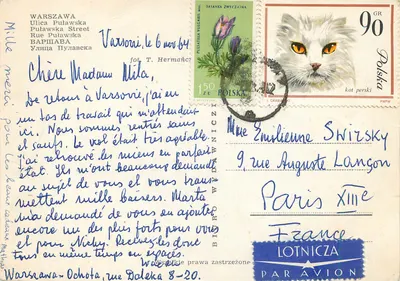 WARSZAWA
Ulica Puławska
Puławska Street
Rue Puławska
ВАРШАВА
Улица Пулавска
Varsovie, le 6 nov 64
fot. T. Hermańcz
Chère Madame Mila,
De retour à Varsovie, j'ai eu
un tas de travail qui m'attendait
ici. Nous sommes rentrés sains
et saufs. Le vol était très agréable,
j'ai retrouvé les miens en parfait
état. Ils m'ont beaucoup demandé
au sujet de vous et vous trans
mettent mille baisers. Marta
m'a demandé de vous en ajouter
encore un des plus forts pour vous
et pour Nicky. Recevez-les donc
tous en même temps en espèces.
Warszawa-Ochota, rue Daleka 8-20.
Mille merci pour les
BIURO WYDAWNICZE
zastrzeżone
SASANKA ZWYCZAJNA
1,50 ZŁ
POLSKA
90 GR
Polska
kot perski
Mme Emilienne SWIZSKY
9, rue Auguste Lançon
Paris XIIIe
France
LOTNICZA
PAR AVION